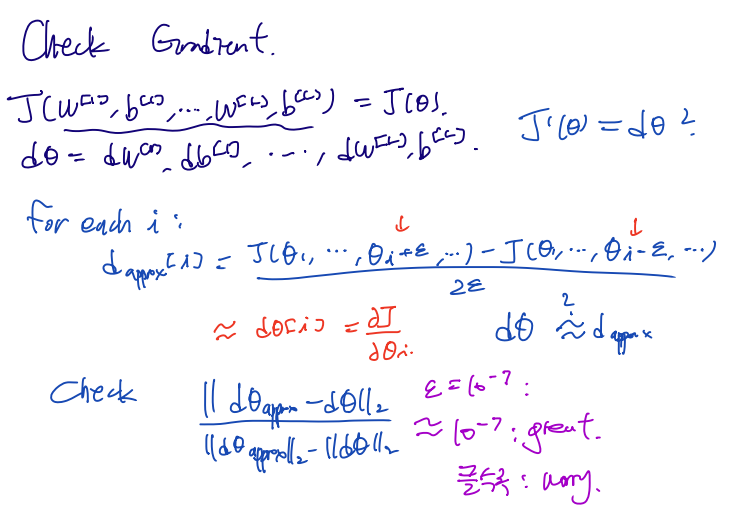 Check Gradient.
J(W^[1], b^[1], ..., W^[L], b^[L]) = J(θ).
J'(θ) = dθ ?
dθ = dW^[1], db^[1], ..., dW^[L], b^[L].
for each i :
d_approx[i] = (J(θ₁, ..., θi+ε, ...) - J(θ₁, ..., θi-ε, ...)) / 2ε
≈ dθ[i] = ∂J/∂θi.
dθ ≈? d_approx
Check ||dθ_approx - dθ||₂ / (||dθ_approx||₂ - ||dθ||₂)
ε = 10^-7 :
≈ 10^-7 : great.
: worry.